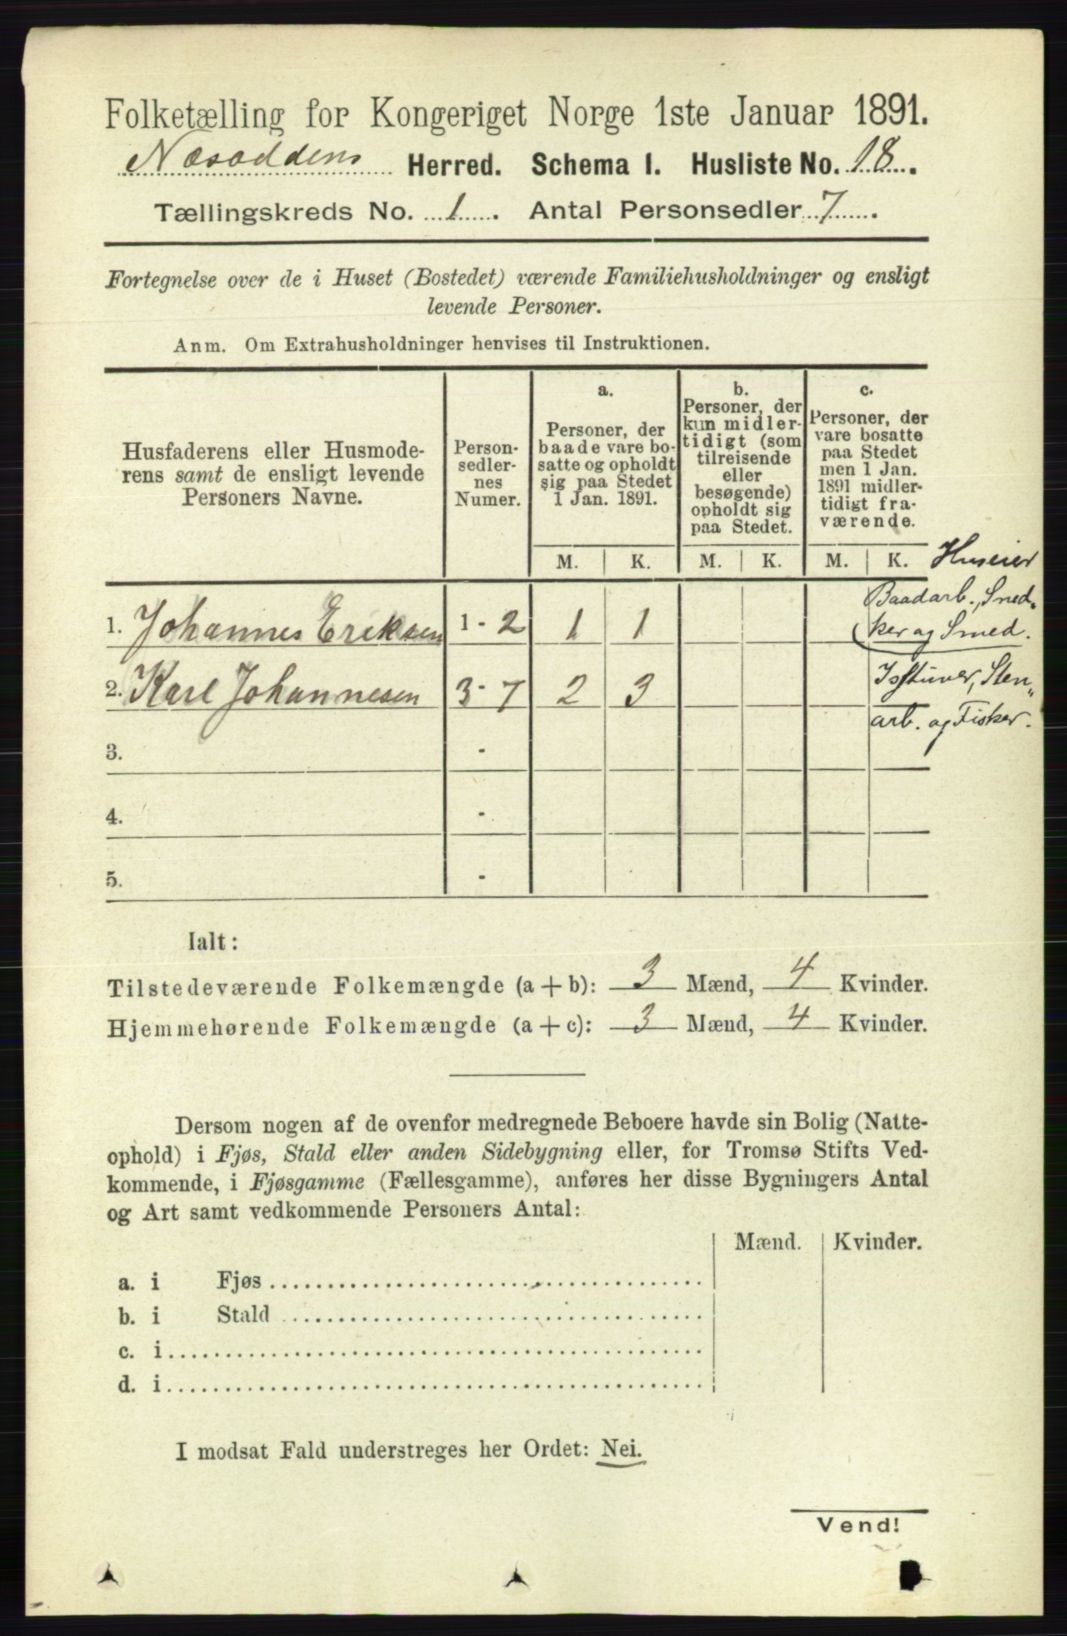 Folketælling for Kongeriget Norge 1ste Januar 1891.
Næsoddens Herred. Schema I. Husliste No. 18.
Tællingskreds No. 1. Antal Personsedler 7.
Fortegnelse over de i Huset (Bostedet) værende Familiehusholdninger og ensligt
levende Personer.
Anm. Om Extrahusholdninger henvises til Instruktionen.
Husfaderens eller Husmode-
rens samt de ensligt levende
Personers Navne.
Person-
sedler-
nes
Numer.
a.
Personer, der
baade vare bo-
satte og opholdt
sig paa Stedet
1 Jan. 1891.
b.
Personer, der
kun midler-
tidigt (som
tilreisende
eller
besøgende)
opholdt sig
paa Stedet.
c.
Personer, der
vare bosatte
paa Stedet
men 1 Jan.
1891 midler-
tidigt fra-
værende.
M. K. M. K. M. K. Huseier
Baadarb., Sned-
1. Johannes Eriksen 1 - 2 1 1 ker og Smed.
2. Karl Johannesen 3 - 7 2 3 Sten-
arb. og Fisker.
3. -
4. -
5. -
Ialt:
Tilstedeværende Folkemængde (a + b): 3 Mænd, 4 Kvinder.
Hjemmehørende Folkemængde (a + c): 3 Mænd, 4 Kvinder.
Dersom nogen af de ovenfor medregnede Beboere havde sin Bolig (Natte-
ophold) i Fjøs, Stald eller anden Sidebygning eller, for Tromsø Stifts Ved-
kommende, i Fjøsgamme (Fællesgamme), anføres her disse Bygningers Antal
og Art samt vedkommende Personers Antal:
Mænd. Kvinder.
a. i Fjøs
b. i Stald
c. i
d. i
I modsat Fald understreges her Ordet: Nei.
Vend!